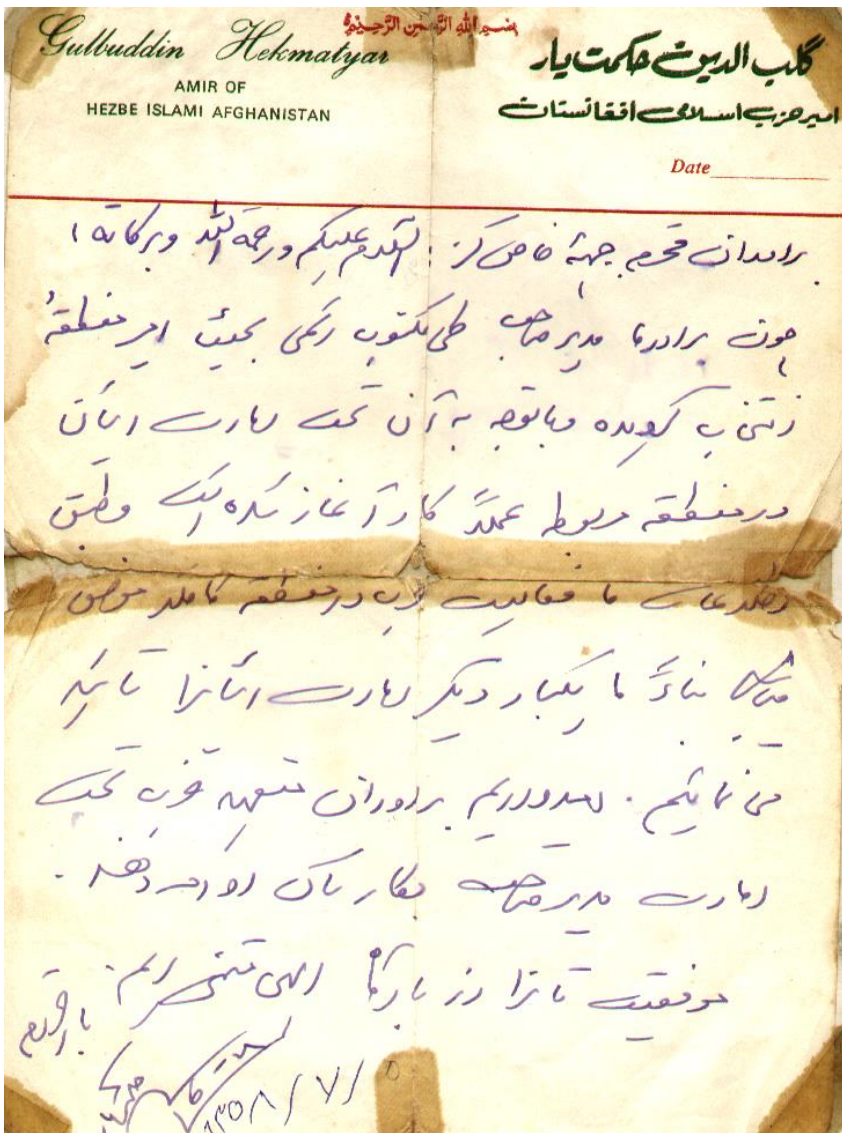 بسم الله الرحمن الرحیم
Gulbuddin Hekmatyar
AMIR OF
HEZBE ISLAMI AFGHANISTAN
گلب الدین حکمت یار
امیر حزب اسلامی افغانستان
Date
برادران محترم جبهه خاص کنر: السلام علیکم ورحمة الله وبرکاته،
چون برادر ما مدیر صاحب طی مکتوب رسمی بحیث امیر منطقهٔ
انتخاب گردیده وبا توجه به آن تحت امارت ایشان
در منطقه مربوط عملاً کار آغاز شده است مطابق
اطلاعات ما فعالیت حزب در منطقه کاملاً
میباشد بناءً ما یکبار دیگر امارت ایشانرا تائید
می نمائیم. امیدواریم برادران متعهد حزب تحت
امارت مدیر صاحب بکار شان ادامه دهند.
موفقیت تانرا از بارگاه الهی متمنی ایم. بااحترام
۱۳۵۸/۷/۵